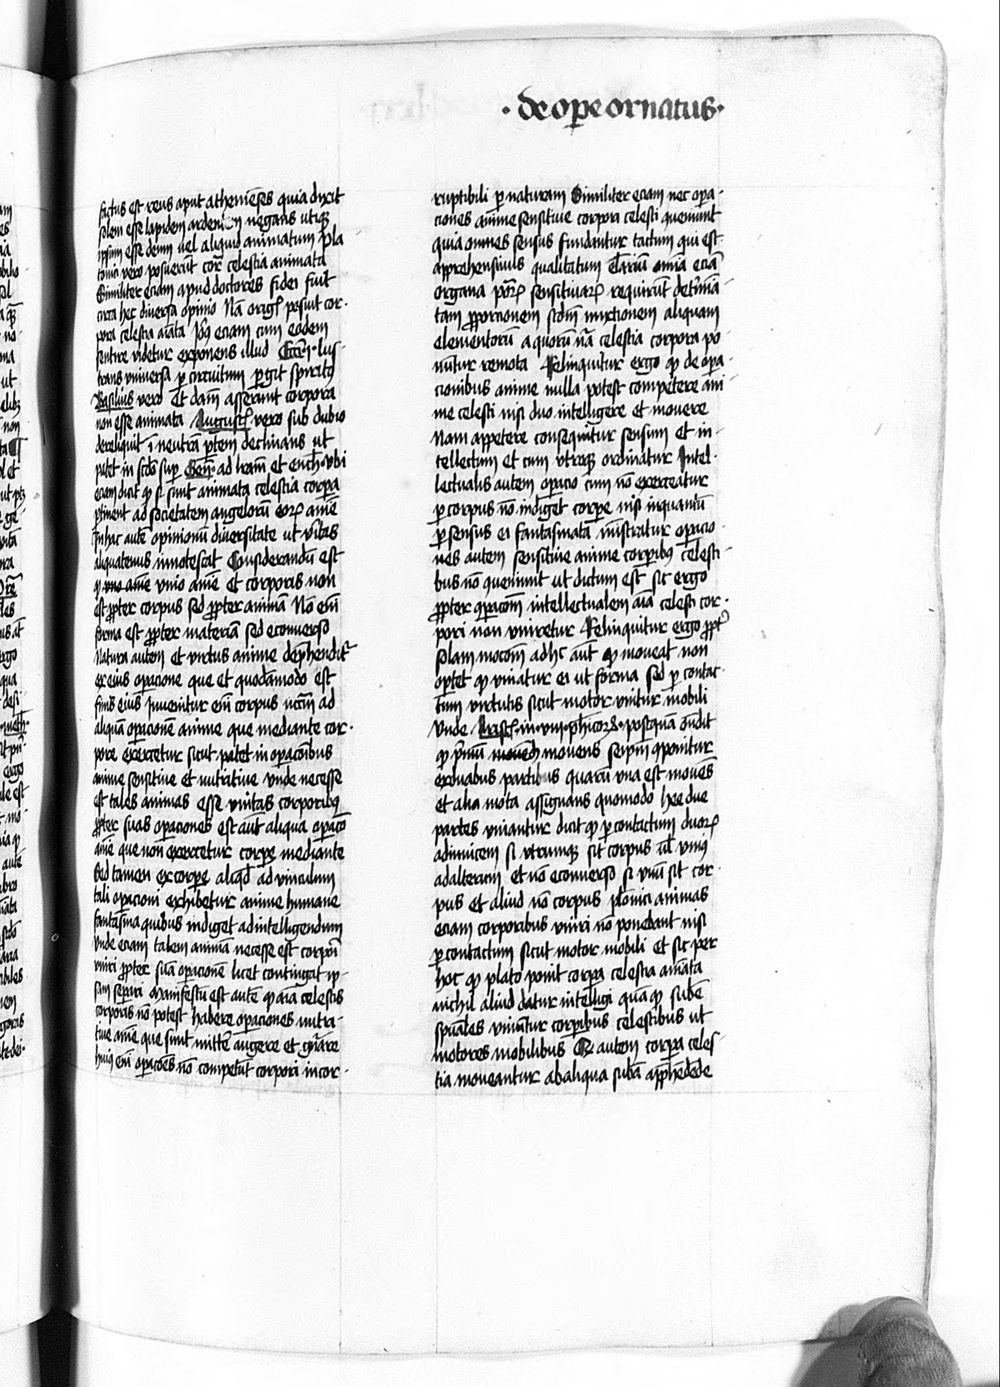 · de op̄e ornatus ·
factus est reus aput athenieñses quia dixit
solem esse lapidem ardentem negans utiqꝫ
ipsum esse deum uel aliquid animatum Pla
tonici vero posuerūt cor̄a celestia animata
Similiter eciam apud doctores fidei fuit
circa hec diversa opinio Nā orig̃ posuit cor·
pora celestia aīata Ieronimꝰ eciam cum eodem
sentire videtur exponens illud Ecc̄i· lus·
trans vniversa ꝑ circuitum ꝑgit spiritꝰ
Basilius vero et dam̄ asserunt corpora
non esse animata Augustꝰ vero sub dubio
dereliquit ī neutrā ꝑtem declinans ut
patet in scd̄o suꝑ Geñ· ad lr̄am et ench· vbi
eciam dicit ꝙ si sunt animata celestia corꝑa
ꝑtinent ad societatem angelorū eorꝝ aīe
In hac autē opinionū diversitate ut v̄itas
aliquatenus innotescat Considerandū est
ꝙ vnio anīe et corporis non
est ꝓpter corpus sed ꝓpter animā Nō enī
forma est ꝓpter materiā sed econverso
Natura autem et virtus anime deprehenditᷣ
ex eius operacione que et quodāmodo est
finis eius Invenitur enī corpus nccm̄ ad
aliquā operacionē anime que mediante cor·
pore exercetur sicut patet in oꝑacōibus
anime sensitive et nutritive vnde necesse
est tales animas esse vnitas corporibꝰ
ꝓpter suas operaciones est aūt aliqua oꝑacō
aīe que non exercetur corꝑe mediante
Sed tamen ex corꝑe aliqđ adminiculum
tali operacioni exhibetur anime humane
fantasmata quibus indiget ad intelligendum
vnde eciam talem animā necesse est corpori
vniri ꝓpter suā operacionē licet contingat ip·
sam separi Manifestū est autē ꝙ aīa celestis
corporis nō potest habere operaciones nutri·
tive aīe que sunt nutrire augere et gn̄are
huiꝰ enī oꝑacōes nō competūt corpori incor·
ruptibili ꝑ naturam Similiter eciam nec oꝑa·
ciones anime sensitive corpora celesti conveniunt
quia omnes sensus fundantur tactum qui est
apprehensivus qualitatum elemētariū omīa eciā
organa potenciarꝝ sensitivarꝝ requirūt det̄mīa·
tam ꝓporcionem scdm̄ mixtionem aliquam
elementorū a quorū nā celestia corpora po·
nūtur remota Relinquitur ergo ꝙ de oꝑa·
cionibus anime nulla potest competere ani·
me celesti nisi duo intelligere et movere
Nam appetere consequitur sensum et in·
tellectum et cum vtroqꝫ ordinatur Intel·
lectualis autem operacio cum nō exerceatur
ꝑ corpus nō indiget corꝑe nisi inquantū
ꝑ sensus ei fantasmata ministratur oꝑacio·
nes autem sensitive anime corꝑibꝰ celesti·
bus nō conveniunt ut dictum est sic ergo
ꝓpter oꝑacōm intellectualem aīa celesti cor·
pori non vniretur Relinquitur ergo ꝓpt̄
solam mocōm adhc aūt ꝙ moveat non
oꝑtet ꝙ vniatur ei ut forma sed ꝑ contac·
tum virtutis sicut motor vnitur mobili
Vnde Arist· in viii phicoꝝ· postquam on̄dit
ꝙ p̄mū movens seipm̄ componitur
ex duabus partibus quarū vna est movēs
et alia mota assignans quomodo hee due
partes vniantur dicit ꝙ ꝑ contactum duorꝝ
adinvicem si vtrumqꝫ sit corpus ul̄ vniꝰ
ad alterum et nō econverso si vnū sit cor·
pus et aliud nō corpus platonici animas
eciam corporibus vniri nō ponebant nisi
ꝑ contactum sicut motor mobili et sic per
hoc ꝙ plato ponit corꝑa celestia aīata
nichil aliud datur intelligi quā ꝙ sube
spūales vniūtur corꝑibus celestibus ut
motores mobilibus Qđ autem corꝑa celes·
tia moveantur ab aliqua subā app̄hēdēte